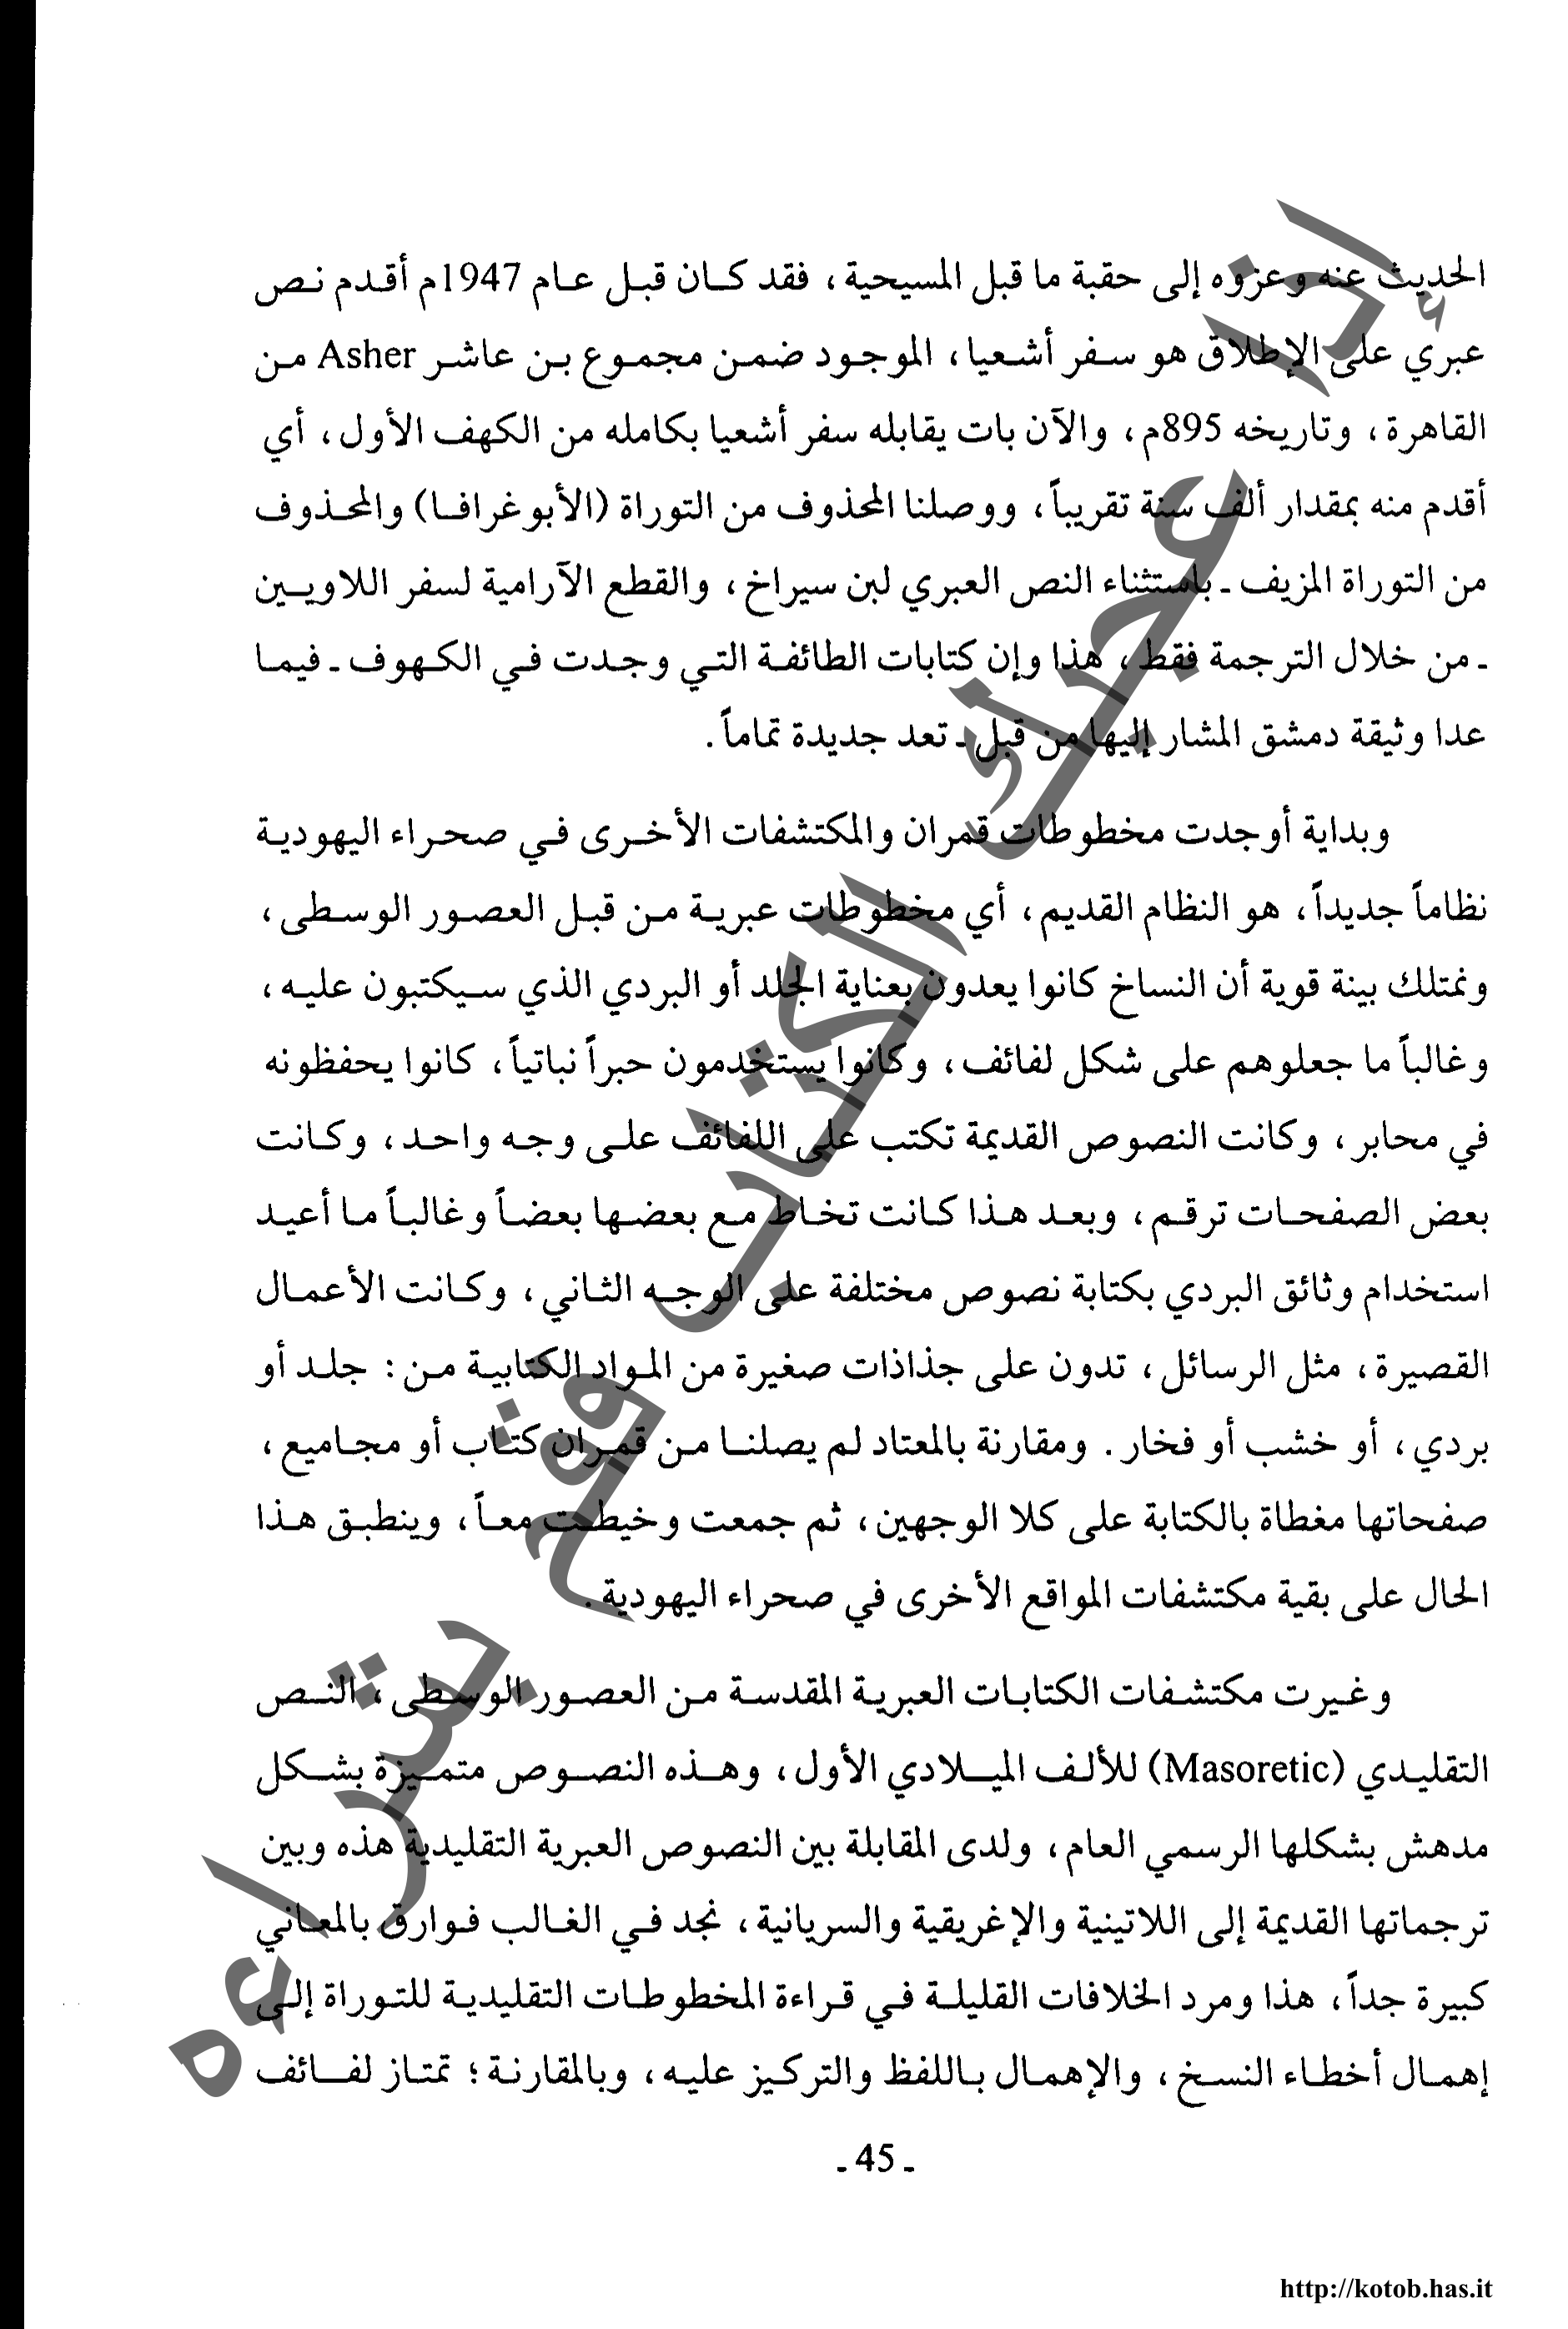 الحديث عنه وعزوه إلى حقبة ما قبل المسيحية، فقد كان قبل عام 1947م أقدم نص
عبري على الإطلاق هو سفر أشعيا، الموجود ضمن مجموع بن عاشر Asher من
القاهرة، وتاريخه 895م، والآن بات يقابله سفر أشعيا بكامله من الكهف الأول، أي
أقدم منه بمقدار ألف سنة تقريباً، ووصلنا المحذوف من التوراة (الأبوغرافا) والمحذوف
من التوراة المزيف ـ باستثناء النص العبري لبن سيراخ، والقطع الآرامية لسفر اللاويين
ـ من خلال الترجمة فقط، هذا وإن كتابات الطائفة التي وجدت في الكهوف ـ فيما
عدا وثيقة دمشق المشار إليها من قبل ـ تعد جديدة تماماً.
وبداية أوجدت مخطوطات قمران والمكتشفات الأخرى في صحراء اليهودية
نظاماً جديداً، هو النظام القديم، أي مخطوطات عبرية من قبل العصور الوسطى،
ونمتلك بينة قوية أن النساخ كانوا يعدون بعناية الجلد أو البردي الذي سيكتبون عليه،
وغالباً ما جعلوهم على شكل لفائف، وكانوا يستخدمون حبراً نباتياً، كانوا يحفظونه
في محابر، وكانت النصوص القديمة تكتب على اللفائف على وجه واحد، وكانت
بعض الصفحات ترقم، وبعد هذا كانت تخاط مع بعضها بعضاً وغالباً ما أعيد
استخدام وثائق البردي بكتابة نصوص مختلفة على الوجه الثاني، وكانت الأعمال
القصيرة، مثل الرسائل، تدون على جذاذات صغيرة من المواد الكتابية من: جلد أو
بردي، أو خشب أو فخار. ومقارنة بالمعتاد لم يصلنا من قمران كتاب أو مجاميع،
صفحاتها مغطاة بالكتابة على كلا الوجهين، ثم جمعت وخيطت معاً، وينطبق هذا
الحال على بقية مكتشفات المواقع الأخرى في صحراء اليهودية.
وغيرت مكتشفات الكتابات العبرية المقدسة من العصور الوسطى، النص
التقليدي (Masoretic) للألف الميلادي الأول، وهذه النصوص متميزة بشكل
مدهش بشكلها الرسمي العام، ولدى المقابلة بين النصوص العبرية التقليدية هذه وبين
ترجماتها القديمة إلى اللاتينية والإغريقية والسريانية، نجد في الغالب فوارق بالمعاني
كبيرة جداً، هذا ومرد الخلافات القليلة في قراءة المخطوطات التقليدية للتوراة إلى
إهمال أخطاء النسخ، والإهمال باللفظ والتركيز عليه، وبالمقارنة؛ تمتاز لفائف
ـ 45 ـ
http://kotob.has.it
إذا أعجبك الكتاب قم بشراءه